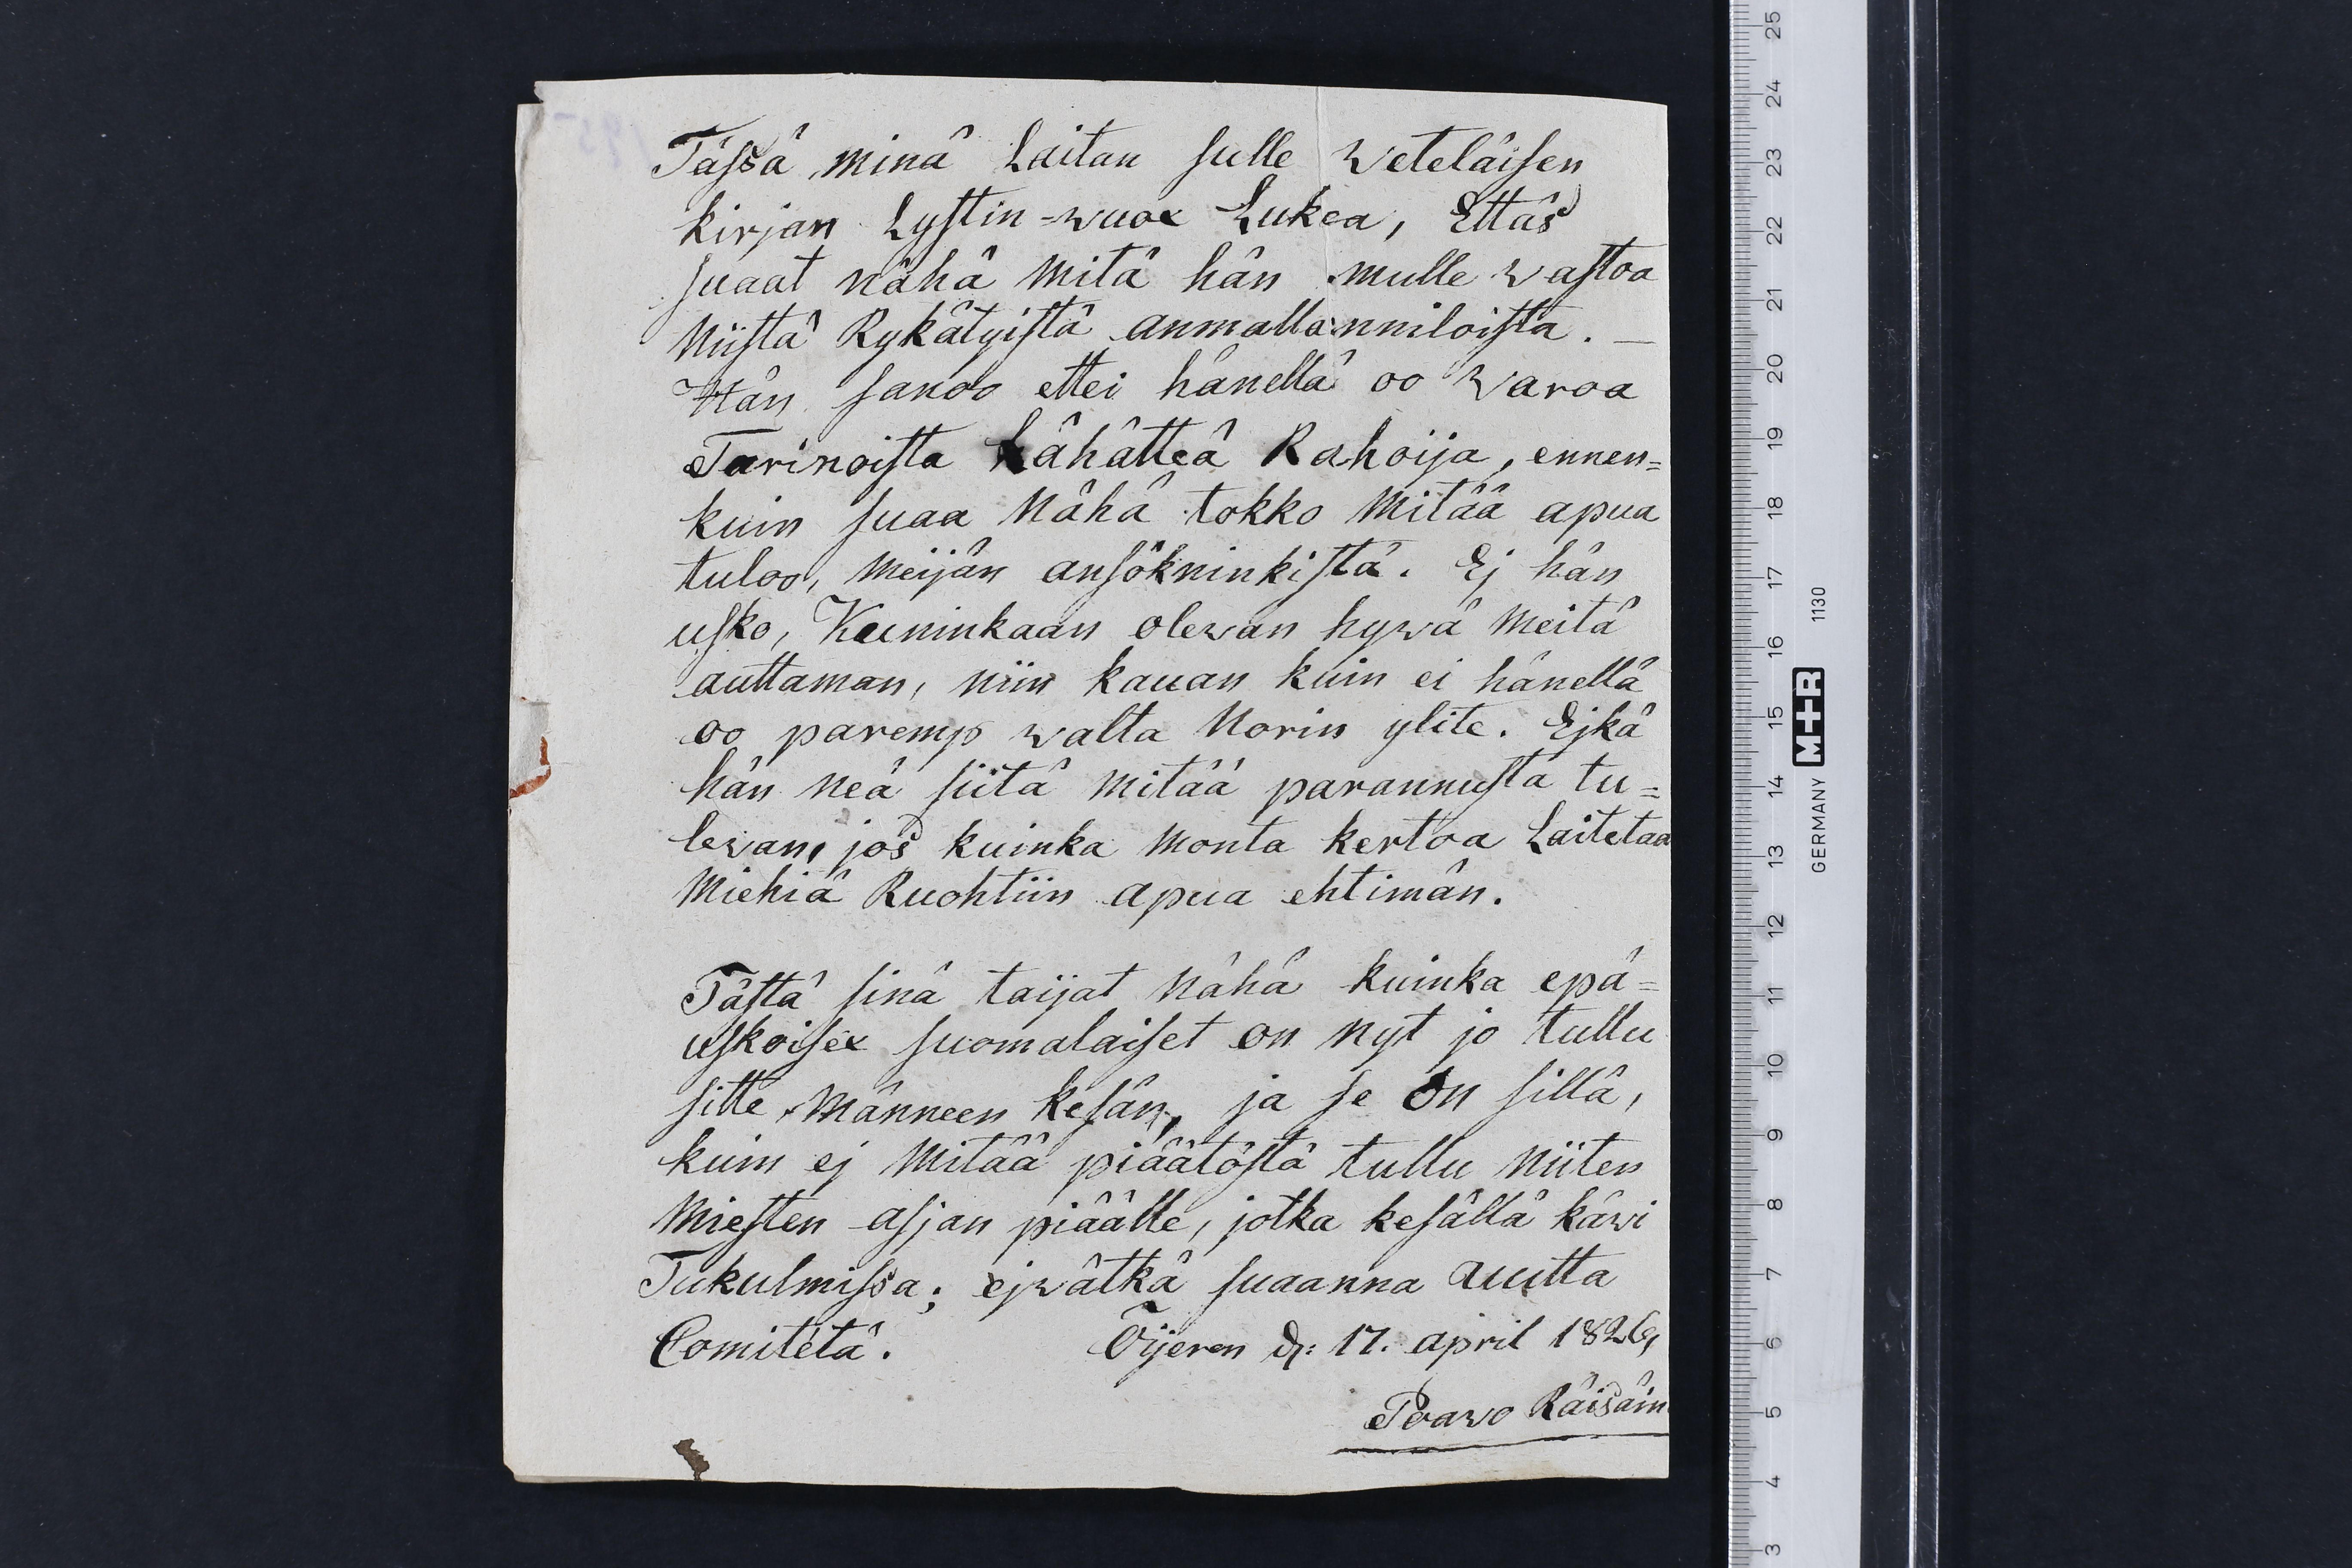 Tässä minä Laitan sulle Weteläisen
kirjan Lystin-wuox Lukea, Ettäs
suaat nähä mitä hän mulle wastoa
Niistä Rykätyistä anmallanniloista. —
Hän sanoo ettei hänellä oo waroa
Tarinoista Lähätteä Rahoija, ennen=
kuin suaa Nähä tokko mitää apua
tuloo, meijän ansökninkistä. Ej hän
usko, Kuninkaan olewan hywä meitä
auttaman, niin kauan kuin ei hänellä
oo paremp walta Norin ylite. Ejkä
hän neä siitä mitää parannusta tu=
lewan, jos kuinka monta kertoa Laitetaa
Miehiä Ruohtiin apua ehtimän.
Tästä sinä taijat Nähä kuinka epä=
uskoisex suomalaiset on nyt jo tullu
sitte männeen kesän, ja se on sillä,
kuin ej mitää piäätöstä tullu niiten
Miesten asjan piäälle, jotka kesällä käwi
Tukulmissa; ejwätkä suaanna Uutta
Comitétä. Öijeren d: 17. april 1826,
Poawo Räisäin